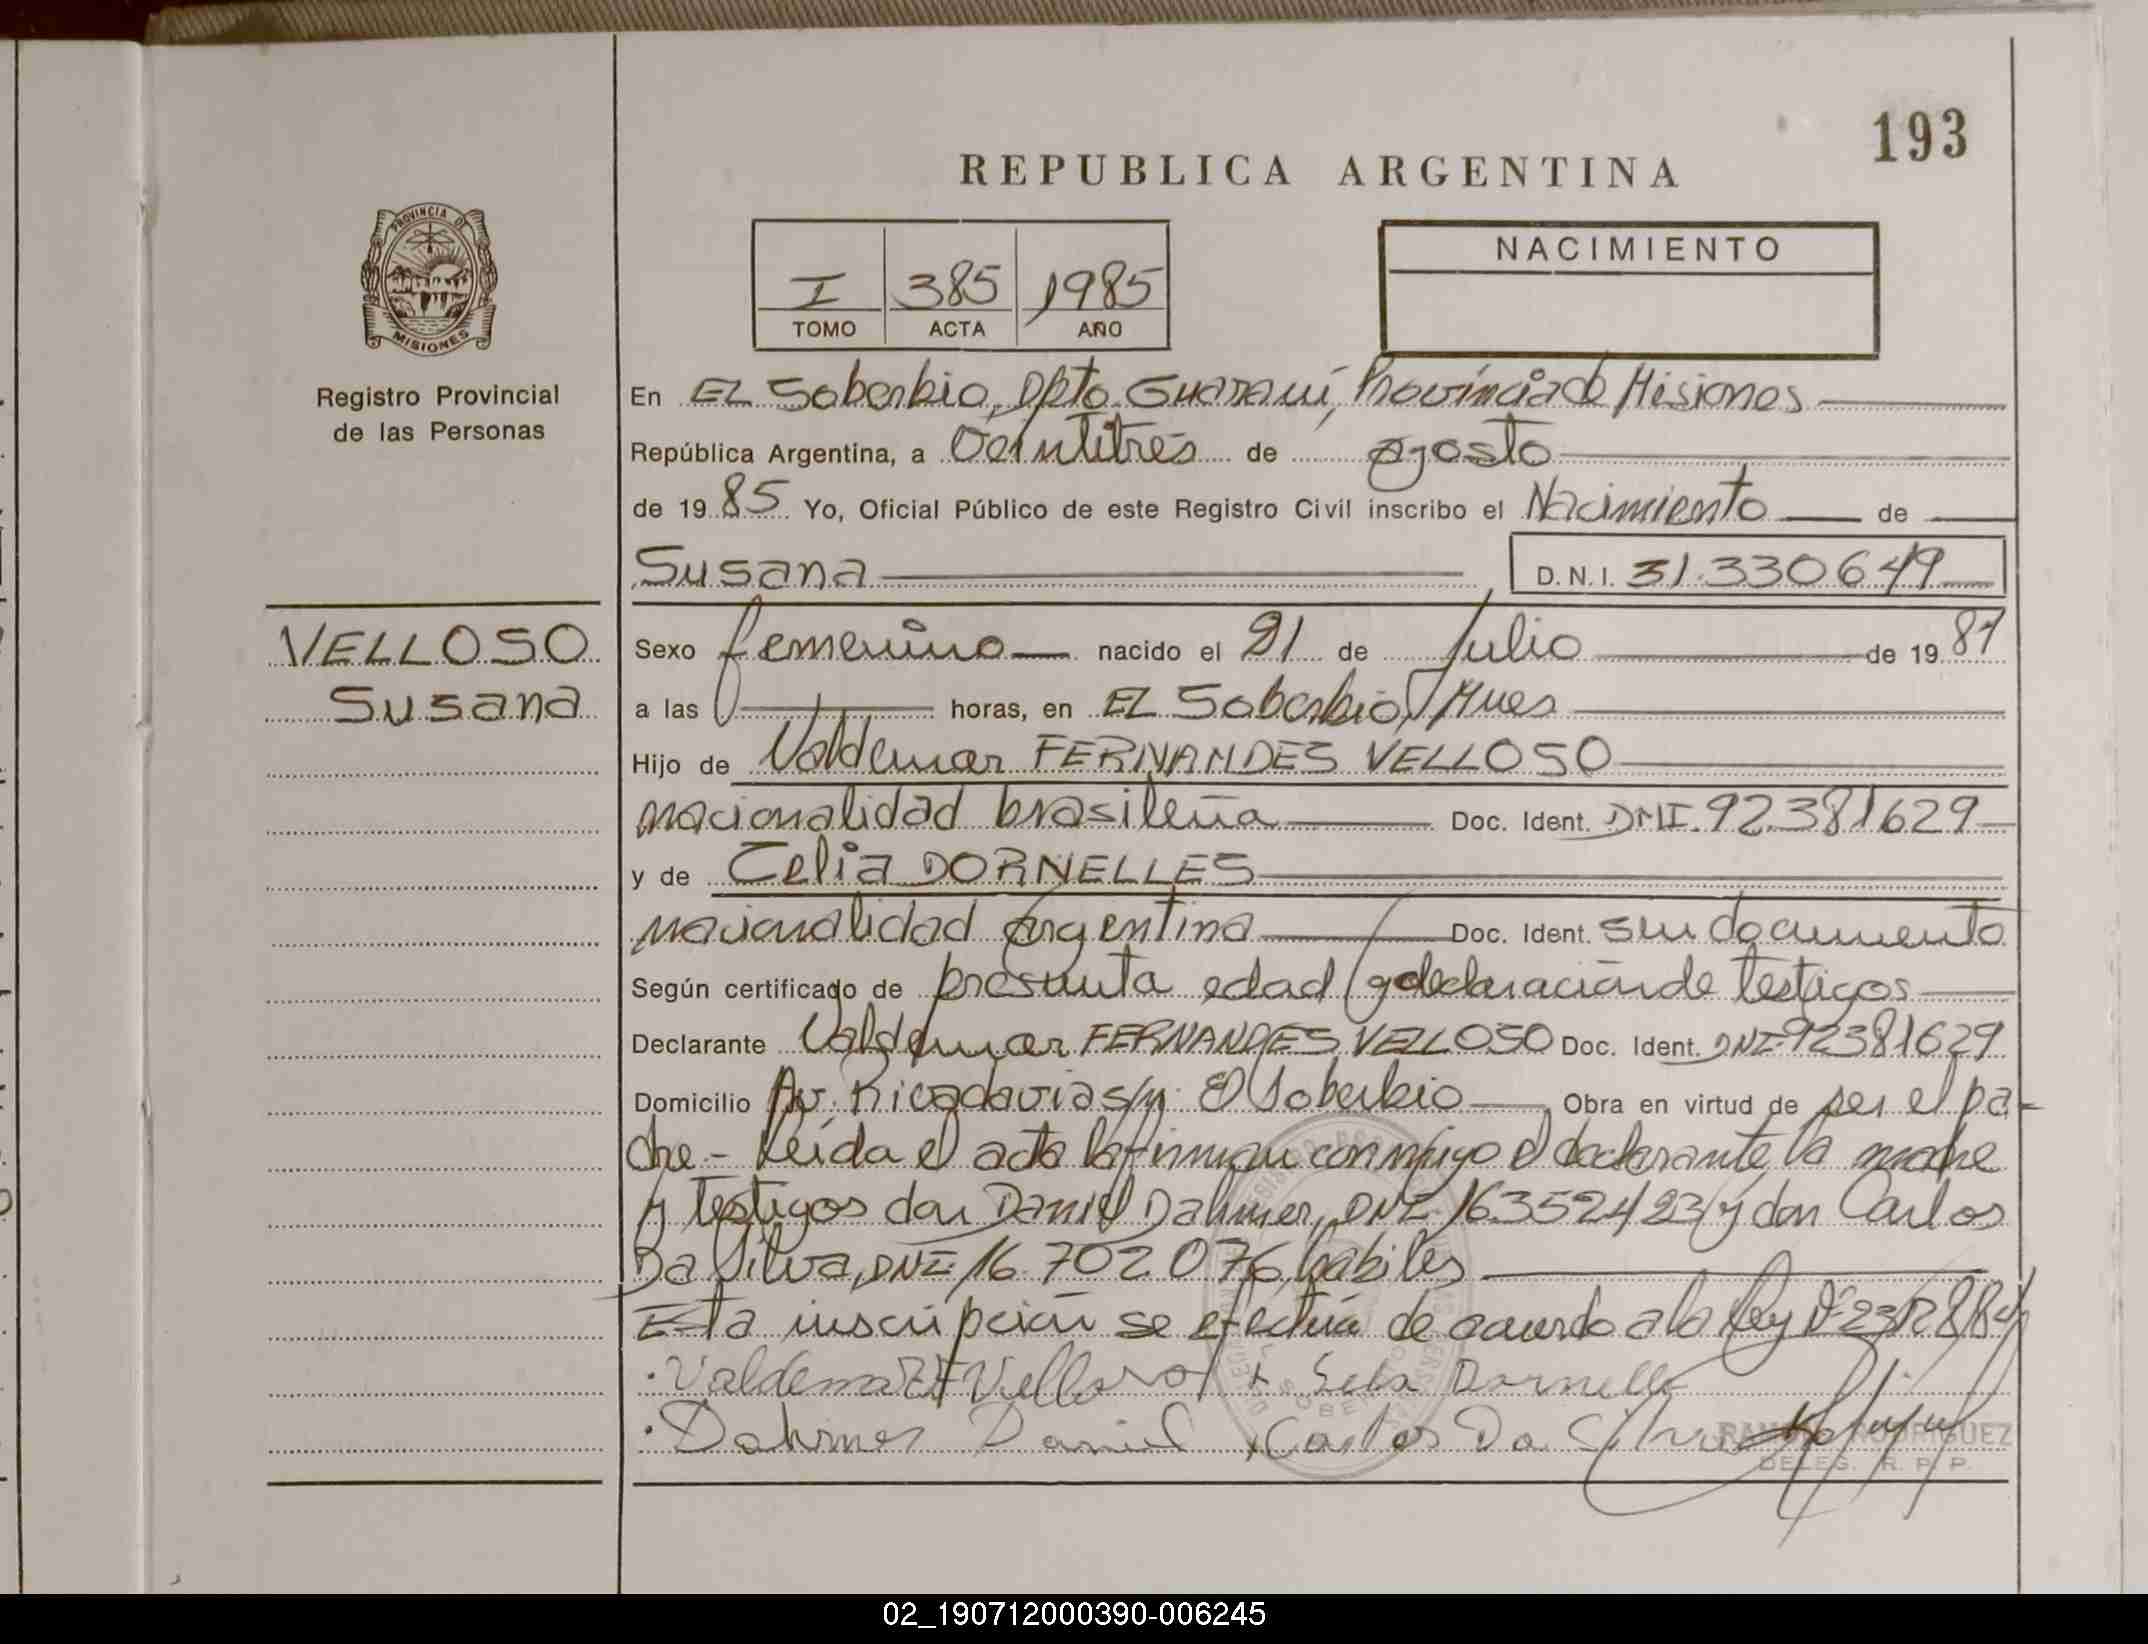 193
REPUBLICA ARGENTINA
PROVINCIA DE
MISIONES
Registro Provincial
de las Personas
I 385 1985
TOMO ACTA AÑO
NACIMIENTO
En EL Soberbio, Dpto. Guaraní, Provincia de Misiones
República Argentina, a Veintitrés de agosto
de 19 85 Yo, Oficial Público de este Registro Civil inscribo el Nacimiento de
Susana D.N.I. 31.330.649
VELLOSO
Susana
Sexo femenino nacido el 21 de Julio de 19 81
a las horas, en EL Soberbio, Mnes
Hijo de Valdemar FERNANDES VELLOSO
nacionalidad brasileña Doc. Ident. DNI. 92.381629
y de Celia DORNELLES
nacionalidad argentina Doc. Ident. sin documento
Según certificado de presunta edad y declaración de testigos
Declarante Valdemar FERNANDES VELLOSO Doc. Ident. DNI. 92381629
Domicilio Av. Rivadavia s/n El Soberbio Obra en virtud de ser el pa-
dre - Leída el acta la firman conmigo el declarante, la madre
y testigos don Daniel Dahmer, DNI. 16.352423 y don Carlos
Da Silva, DNI. 16.702.076, hábiles
Esta inscripción se efectúa de acuerdo a la Ley Nº
Valdemar F Velloso Dornelle
Dahmer Daniel Carlos Da Silva
RODRIGUEZ
DELEG. R. P. P.
02_190712000390-006245